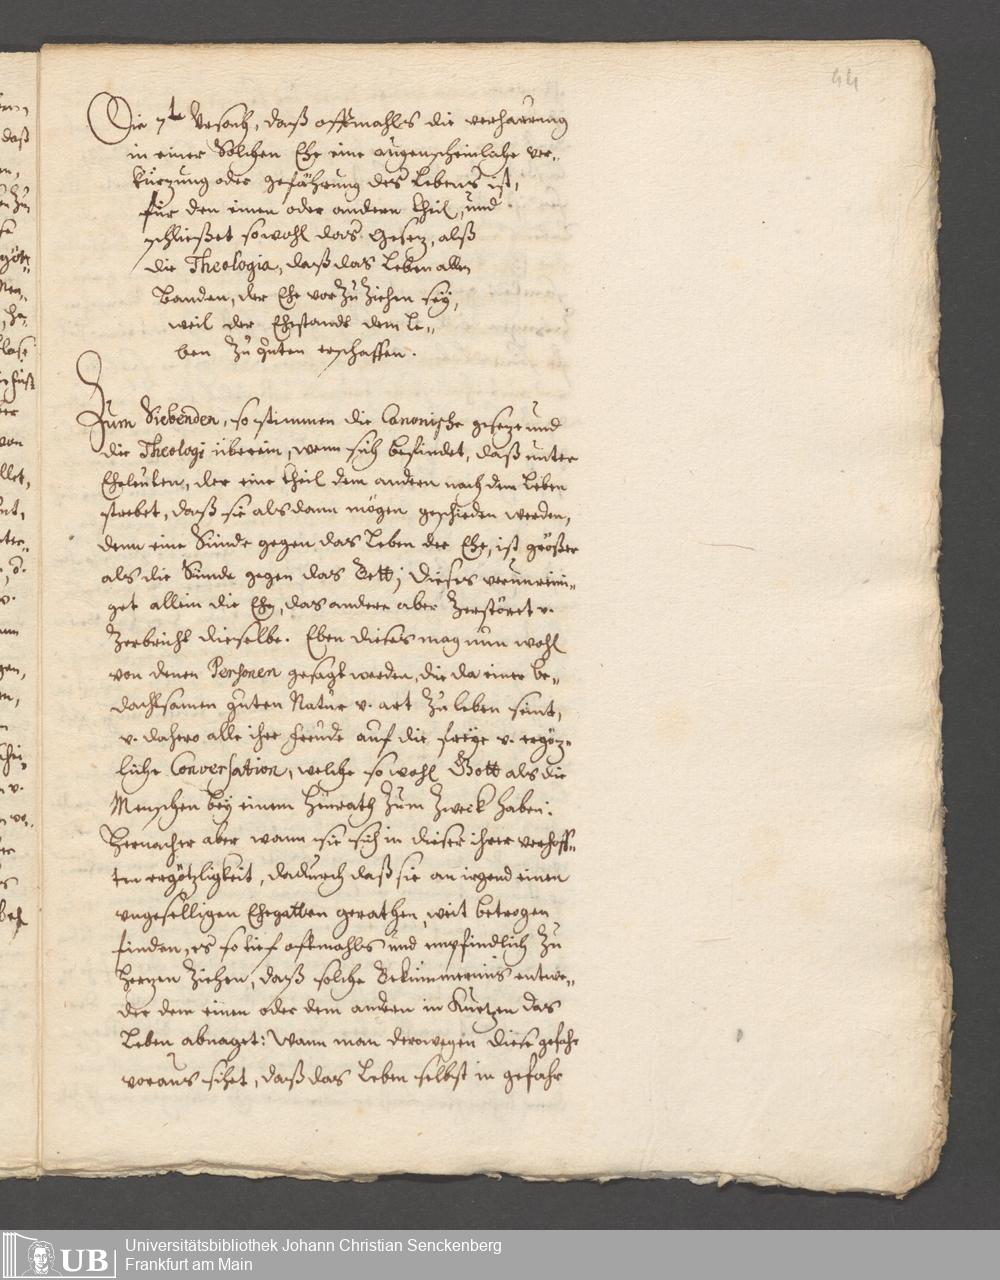 44
Die 7te Ursach, daß offtmahls die verharrung
in einer Solchen Ehe eine augenscheinliche ver-
kürzung oder gefährung des Lebens ist,
für den einen oder andern theil, und
schließet sowohl das Gesez, alß
die Theologia, daß das Leben allen
Banden, der Ehe vor zu ziehen seÿ,
weil der Ehestandt dem Le-
ben zu guten erschaffen.
Zum Siebenden, so stimmen die Canonische geseze und
die Theologi überein, wenn sich befindet, daß unter
Eheleuten, der eine theil dem andern nach dem Leben
strebet, daß sie alsdann mögen geschieden werden,
denn eine Sünde gegen das Leben der Ehe, ist größer
als die Sünde gegen das Bett; dieses verunreini-
get allein die Ehe, das andere aber zerstöret v.
zerbricht dieselbe. Eben dieses mag nun wohl
von denen Personen gesagt werden, die da einer be-
dachtsamen guten Natur v. art zu leben seint,
v. dahero alle ihre freude auf die freÿe v. ergöz-
liche Conversation, welche so wohl Gott als die
Menschen beÿ einem Heürath zum Zweck haben:
Hernacher aber wann sie sich in dieser ihrer verhoff-
ten ergötzligkeit, dadurch daß sie an irgend einen
ungeselligen Ehegatten gerathen, weit betrogen
finden, es so tief offtmahls und empfindlich zu
Herzen ziehen, daß solche Bekümmernüs entwe-
der dem einen oder dem andern in Kurtzen das
Leben abnaget: Wann man derowegen diese gefahr
voraus sihet, daß das Leben selbst in gefahr
Universitätsbibliothek Johann Christian Senckenberg
Frankfurt am Main
UB